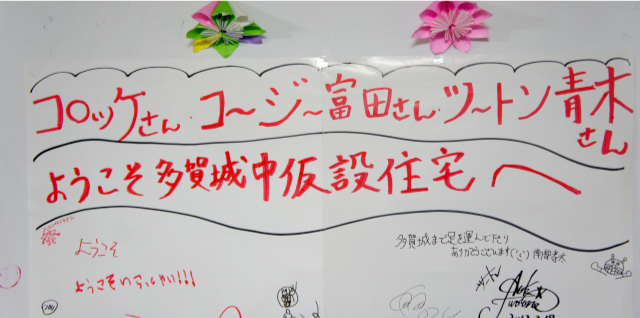 コロッケさん・コ〜ジ〜富田さん・ツ〜トン青木さん
ようこそ多賀城中仮設住宅へ
ようこそ
ようこそいらっしゃい!!!
多賀城まで足を運んで下さり
ありがとうございます(^^)